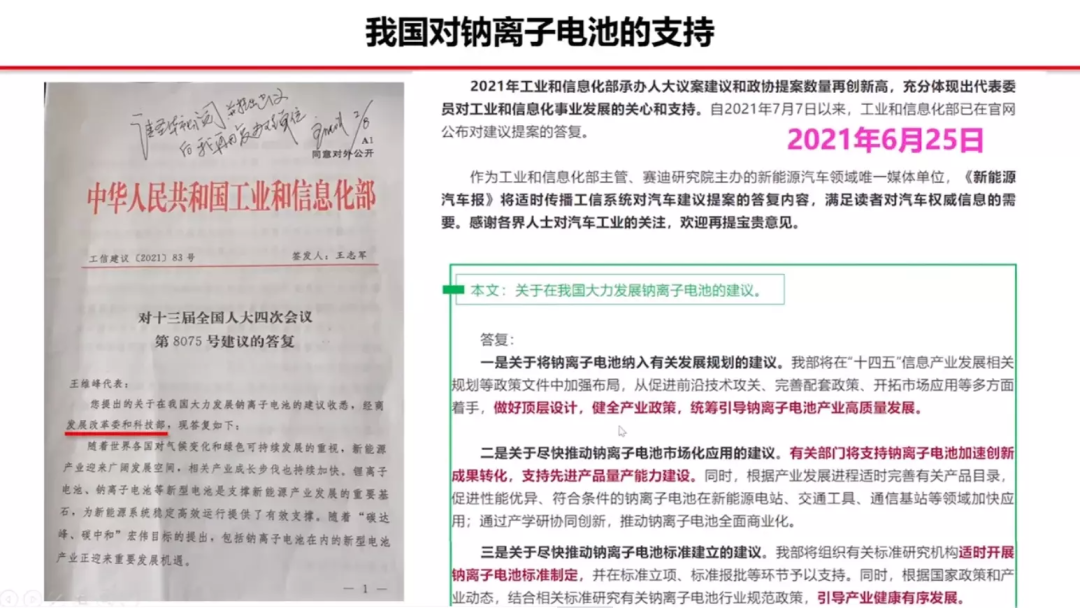 我国对钠离子电池的支持
A1
同意对外公开
中华人民共和国工业和信息化部
工信建议〔2021〕83号 签发人：王志军
对十三届全国人大四次会议
第8075号建议的答复
王维峰代表：
您提出的关于在我国大力发展钠离子电池的建议收悉，经商
发展改革委和科技部，现答复如下：
随着世界各国对气候变化和绿色可持续发展的重视，新能源
产业迎来广阔发展空间，相关产业成长步伐也持续加快。锂离子
电池、钠离子电池等新型电池是支撑新能源产业发展的重要基
石，为新能源系统稳定高效运行提供了有效支撑。随着“碳达
峰、碳中和”宏伟目标的提出，包括钠离子电池在内的新型电池
产业正迎来重要发展机遇。
— 1 —
2021年工业和信息化部承办人大议案建议和政协提案数量再创新高，充分体现出代表委
员对工业和信息化事业发展的关心和支持。自2021年7月7日以来，工业和信息化部已在官网
公布对建议提案的答复。
2021年6月25日
作为工业和信息化部主管、赛迪研究院主办的新能源汽车领域唯一媒体单位，《新能源
汽车报》将适时传播工信系统对汽车建议提案的答复内容，满足读者对汽车权威信息的需
要。感谢各界人士对汽车工业的关注，欢迎再提宝贵意见。
本文：关于在我国大力发展钠离子电池的建议。
答复：
一是关于将钠离子电池纳入有关发展规划的建议。我部将在“十四五”信息产业发展相关
规划等政策文件中加强布局，从促进前沿技术攻关、完善配套政策、开拓市场应用等多方面
着手，做好顶层设计，健全产业政策，统筹引导钠离子电池产业高质量发展。
二是关于尽快推动钠离子电池市场化应用的建议。有关部门将支持钠离子电池加速创新
成果转化，支持先进产品量产能力建设。同时，根据产业发展进程适时完善有关产品目录，
促进性能优异、符合条件的钠离子电池在新能源电站、交通工具、通信基站等领域加快应
用；通过产学研协同创新，推动钠离子电池全面商业化。
三是关于尽快推动钠离子电池标准建立的建议。我部将组织有关标准研究机构适时开展
钠离子电池标准制定，并在标准立项、标准报批等环节予以支持。同时，根据国家政策和产
业动态，结合相关标准研究有关钠离子电池行业规范政策，引导产业健康有序发展。